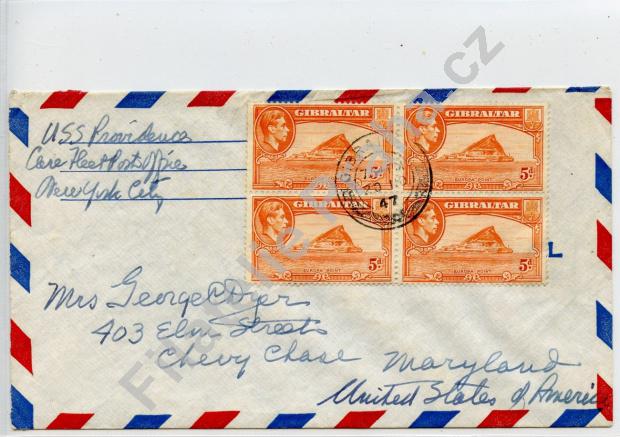 USS Providence
Care Fleet Post Office
New York City
GIBRALTAR
EUROPA POINT
5d
GIBRALTAR
EUROPA POINT
5d
GIBRALTAR
EUROPA POINT
5d
GIBRALTAR
EUROPA POINT
5d
47
L
Mrs George C Dyer
403 Elm Street
Chevy Chase Maryland
United States of America